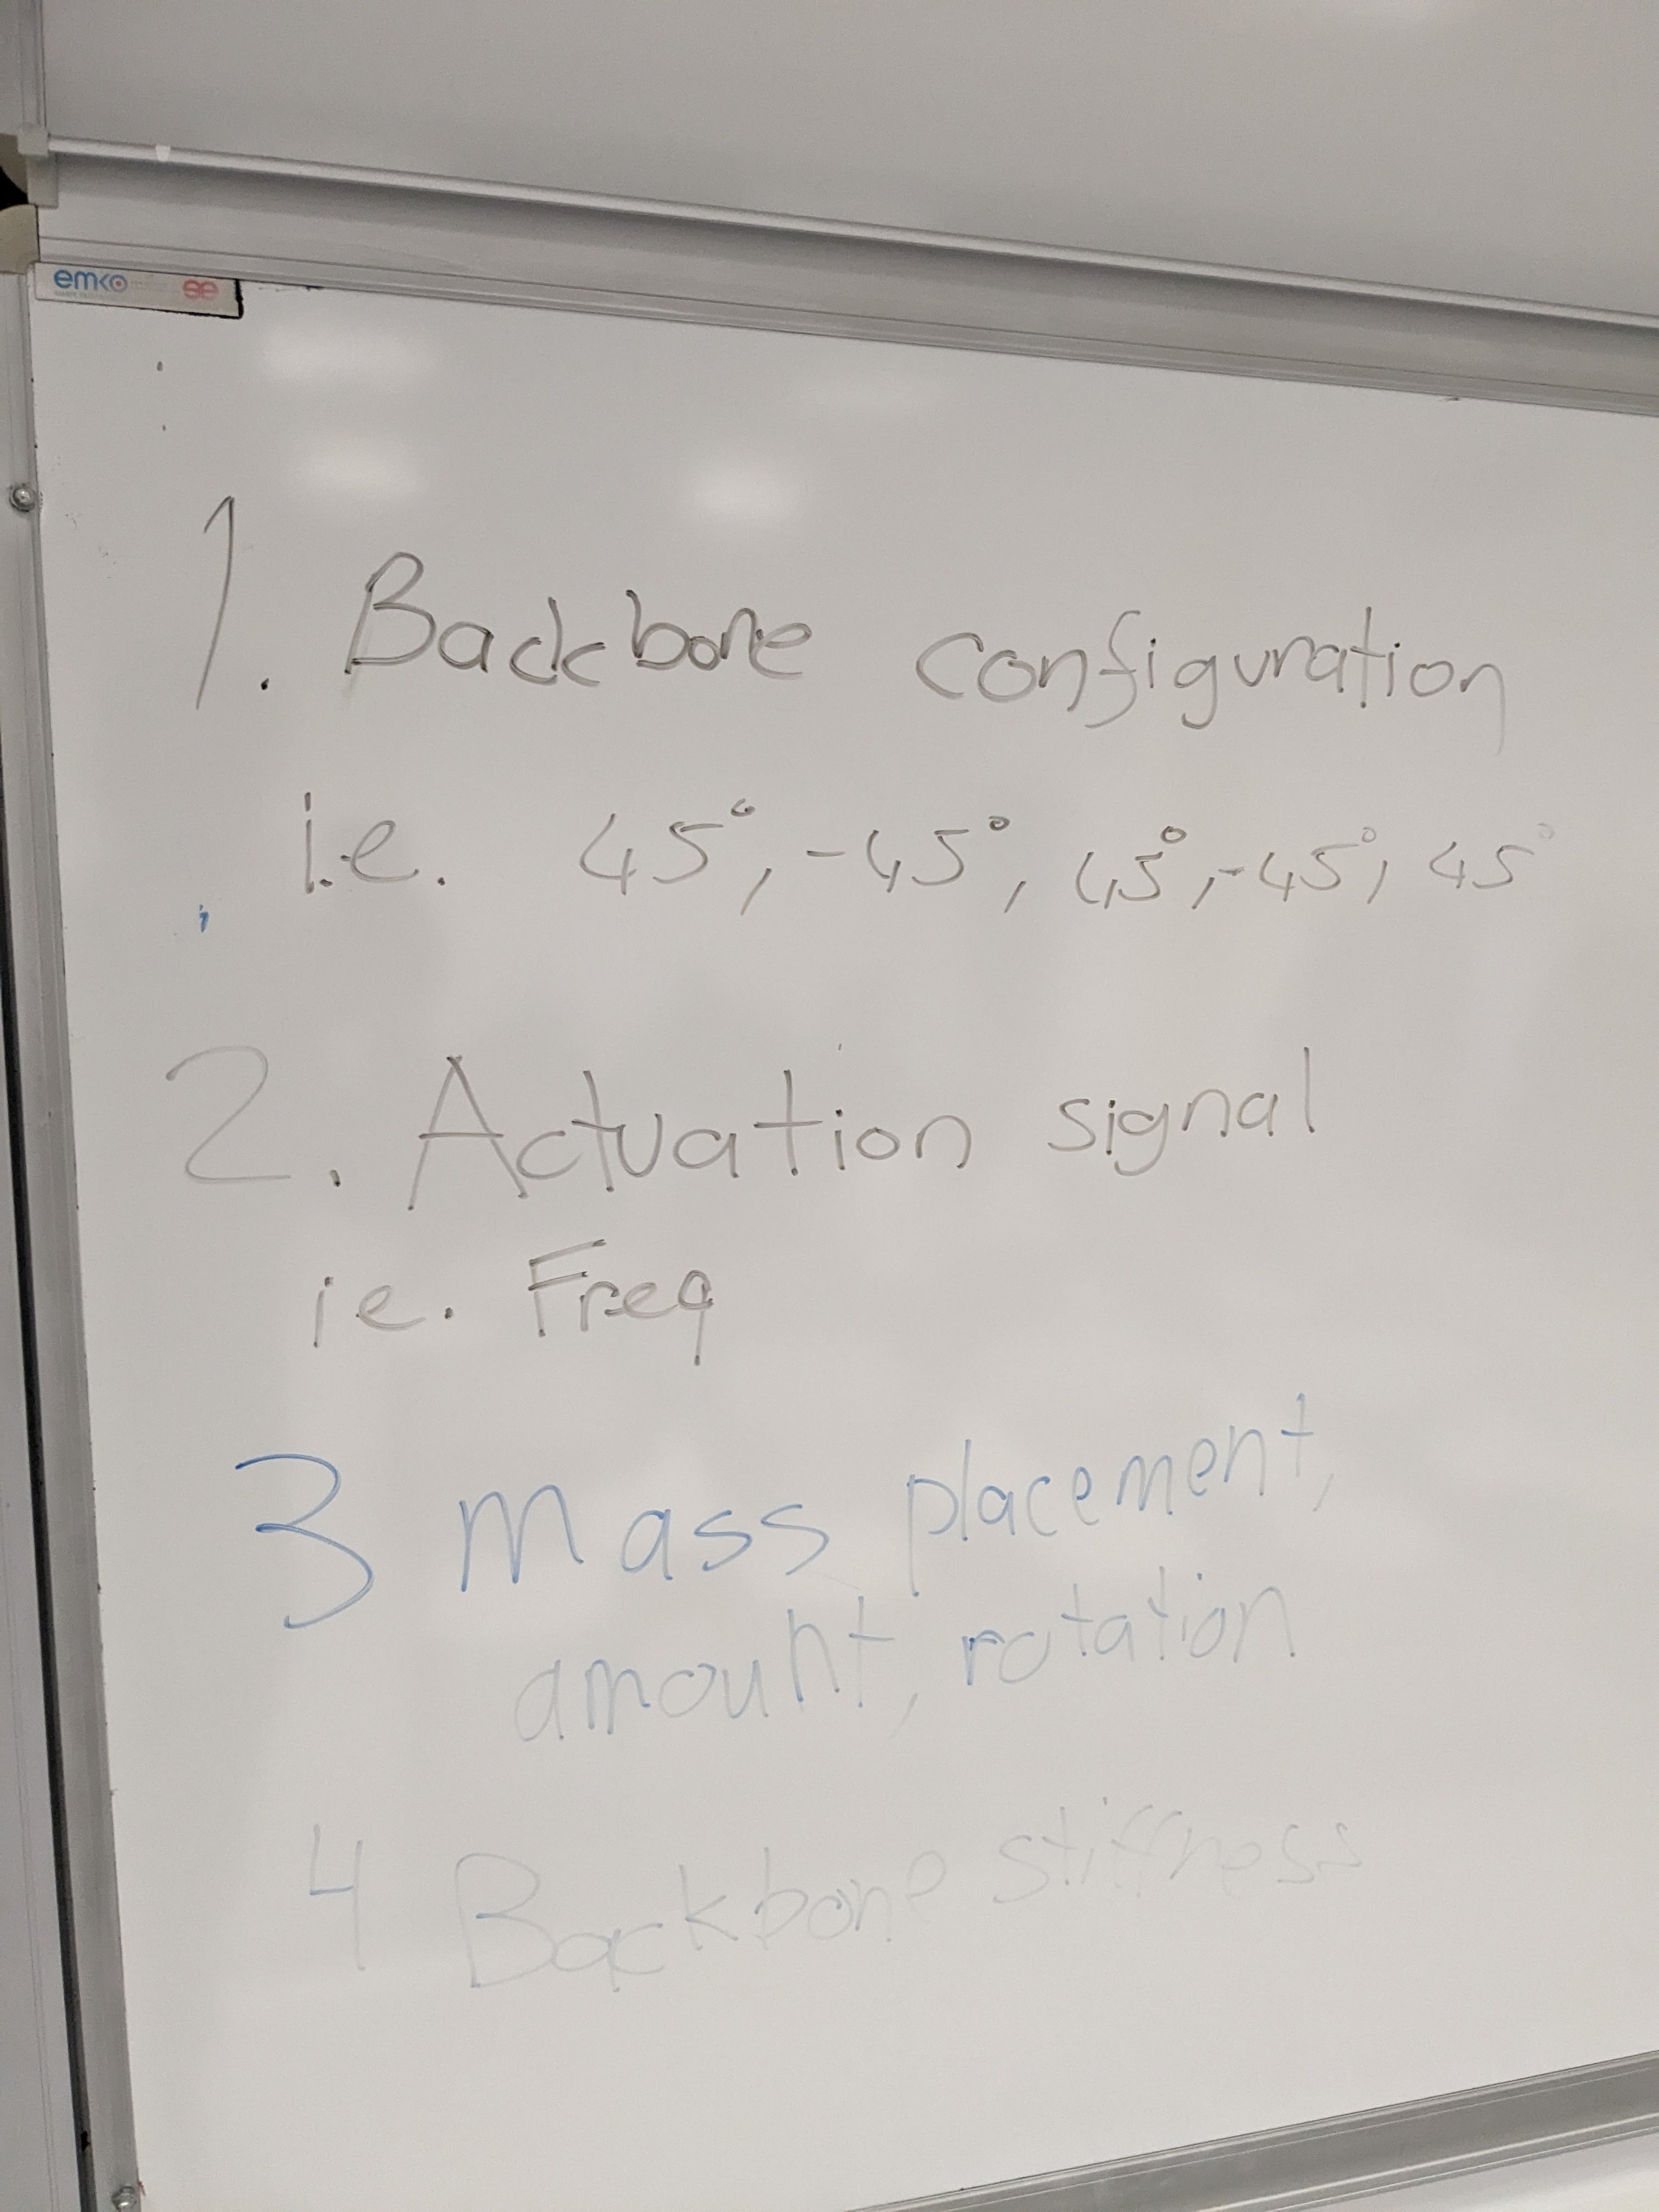 emko
1. Backbone configuration
i.e. 45°, -45°, 45°, -45°, 45°
2. Actuation signal
ie. Freq
3 Mass placement,
amount, rotation
4 Backbone stiffness